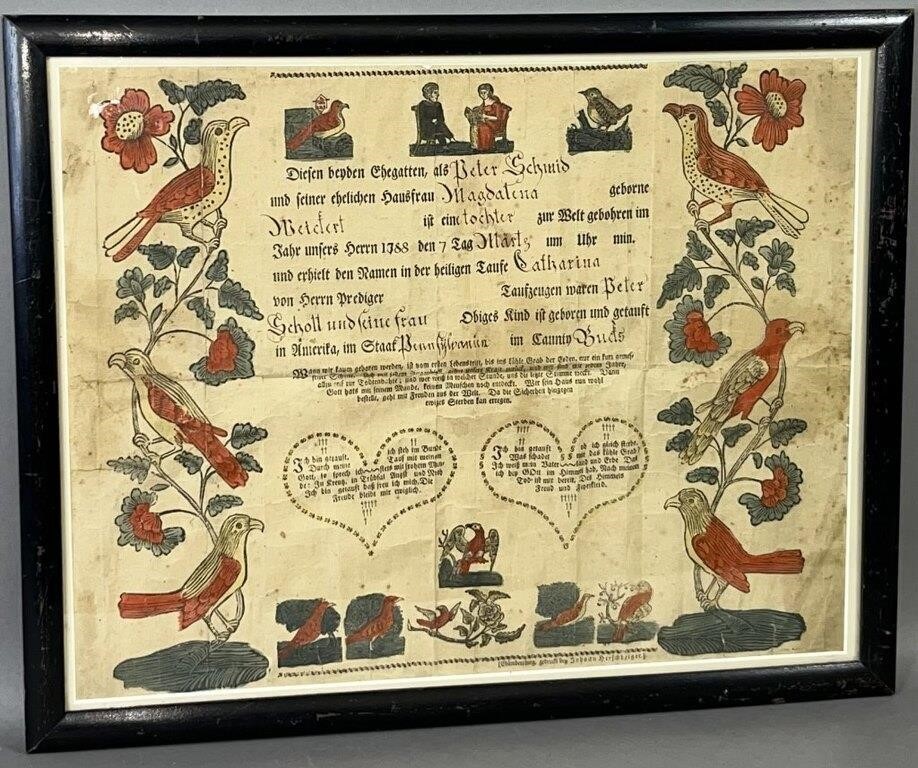 Diesen beyden Ehegatten, als Peter Schmid
und seiner ehelichen Hausfrau Magdalena geborne
Weickert ist eine tochter zur Welt gebohren im
Jahr unsers Herrn 1788 den 7 Tag Märtz um Uhr min.
und erhielt den Namen in der heiligen Taufe Catharina
von Herrn Prediger Taufzeugen waren Peter
Scholl und seine frau Obiges Kind ist geboren und getauft
in Amerika, im Staat Pennsylvanin im Caunty Bucks
Wann wir kaum geboren werden, ist vom ersten Lebenstritt, bis ins kühle Grab der Erden, nur ein kurz gemeß-
ner Schritt. Ach mit jedem Augenblick gehet unsere Kraft zurück, und wir sind mit jedem Jahre,
allzu reif zur Todtenbahre; und wer weiß in welcher Stunde, uns die letzte Stimme weckt. Dann
Gott hats mit seinem Munde, keinen Menschen noch entdeckt. Wer sein Haus nun wohl
bestellt, geht mit Freuden aus der Welt. Da die Sicherheit hingegen
ewiges Sterben kan erregen.
Ich bin getauft, ich steh im Bunde
Durch meine Tauf mit meinem
Gott, so sprech ich stets mit frohem Mun-
de: In Kreutz, in Trübsal Angst und Noth
Ich bin getauft daß freu ich mich, Die
Freude bleibt mir ewiglich.
Ich bin getauft ob ich gleich sterbe,
Was schadet mir das kühle Grab?
Ich weiß mein Vaterland und Erbe Das
ich bey GOtt im Himmel hab, Nach meinem
Tod ist mir bereit, Des Himmels
Freud und
Chambersburg, gedruckt bey Johann Herschberger